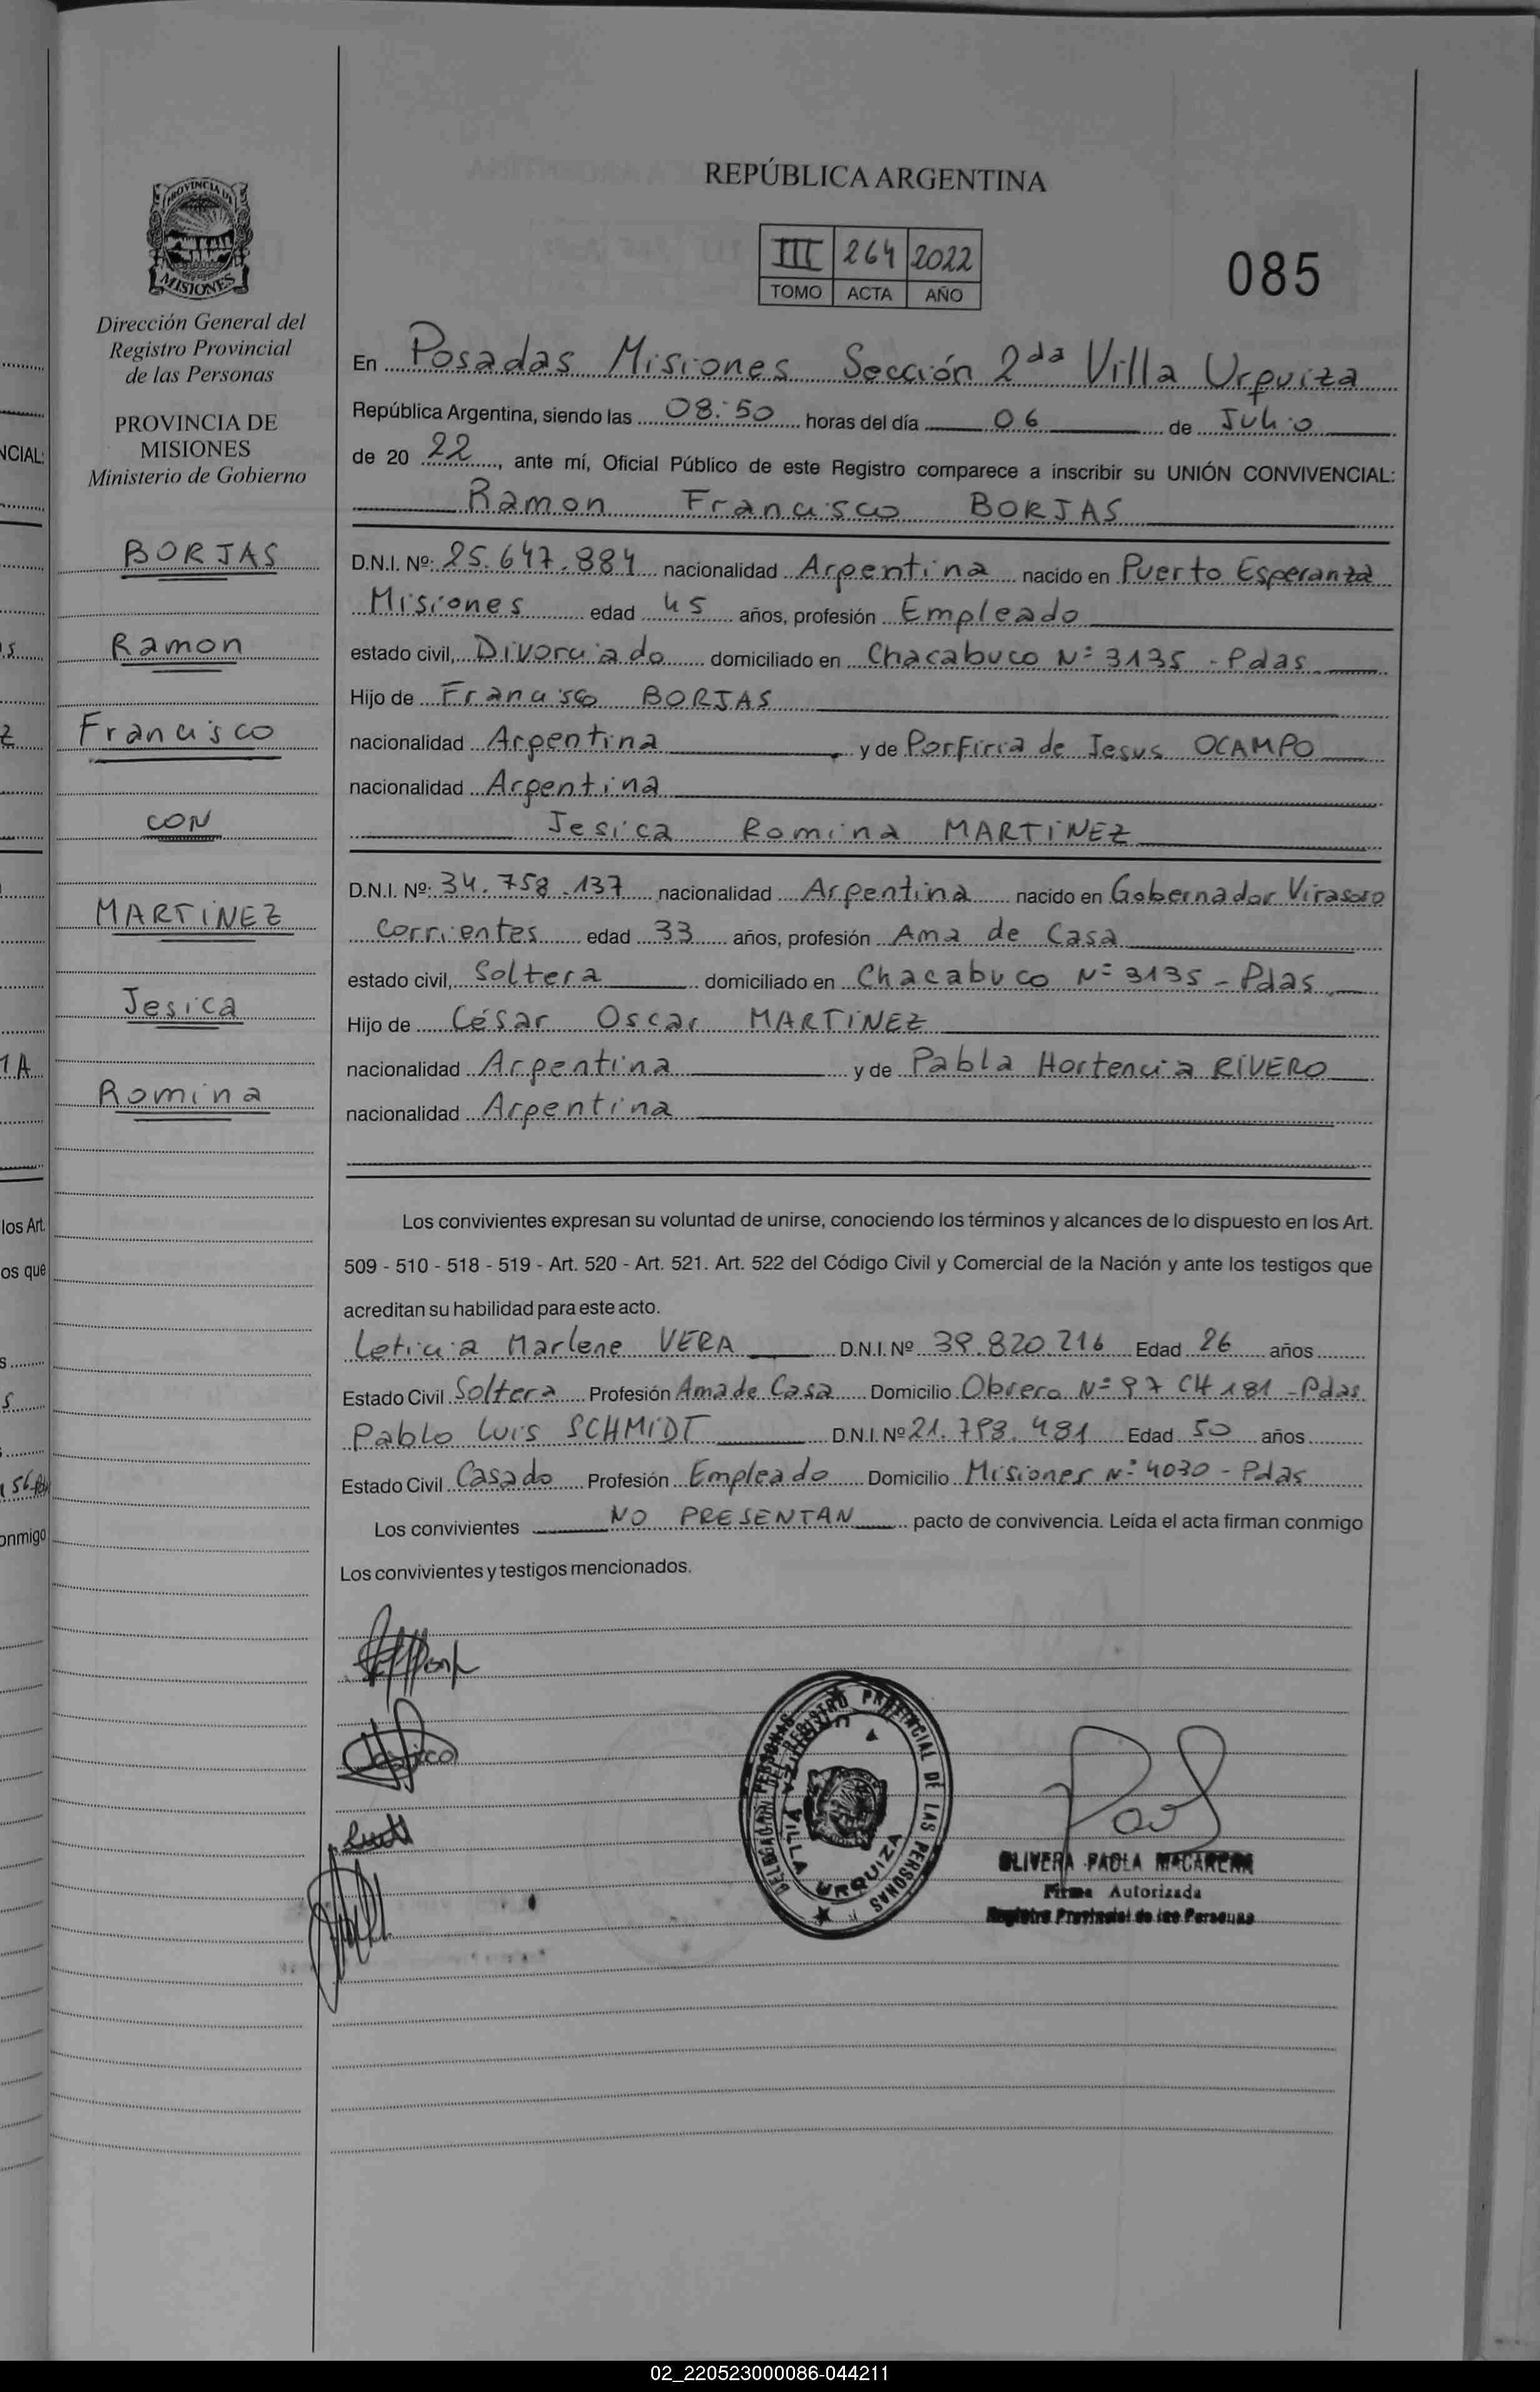 REPÚBLICA ARGENTINA
III 264 2022
TOMO ACTA AÑO
085
PROVINCIA DE
MISIONES
Dirección General del
Registro Provincial
de las Personas
PROVINCIA DE
MISIONES
Ministerio de Gobierno
BORJAS
Ramon
Francisco
CON
MARTINEZ
Jesica
Romina
En Posadas Misiones Sección 2da Villa Urquiza
República Argentina, siendo las 08:50 horas del día 06 de Julio
de 20 22, ante mí, Oficial Público de este Registro comparece a inscribir su UNIÓN CONVIVENCIAL:
Ramon Francisco BORJAS
D.N.I. Nº: 25.647.884 nacionalidad Argentina nacido en Puerto Esperanza
Misiones edad 45 años, profesión Empleado
estado civil, Divorciado domiciliado en Chacabuco Nº 3135 - Pdas
Hijo de Francisco BORJAS
nacionalidad Argentina y de Porfiria de Jesus OCAMPO
nacionalidad Argentina
Jesica Romina MARTINEZ
D.N.I. Nº: 34.758.137 nacionalidad Argentina nacido en Gobernador Virasoro
Corrientes edad 33 años, profesión Ama de Casa
estado civil, Soltera domiciliado en Chacabuco Nº 3135 - Pdas
Hijo de César Oscar MARTINEZ
nacionalidad Argentina y de Pabla Hortencia RIVERO
nacionalidad Argentina
Los convivientes expresan su voluntad de unirse, conociendo los términos y alcances de lo dispuesto en los Art.
509 - 510 - 518 - 519 - Art. 520 - Art. 521. Art. 522 del Código Civil y Comercial de la Nación y ante los testigos que
acreditan su habilidad para este acto.
Leticia Marlene VERA D.N.I. Nº 39.820.216 Edad 26 años
Estado Civil Soltera Profesión Ama de Casa Domicilio Obrero Nº 97 CH 181 - Pdas
Pablo Luis SCHMIDT D.N.I. Nº 21.793.481 Edad 50 años
Estado Civil Casado Profesión Empleado Domicilio Misiones Nº 4030 - Pdas
Los convivientes NO PRESENTAN pacto de convivencia. Leída el acta firman conmigo
Los convivientes y testigos mencionados.
DELEGACIÓN DEL REGISTRO PROVINCIAL DE LAS PERSONAS
VILLA URQUIZA
OLIVERA PAOLA MACARENA
Firma Autorizada
Registro Provincial de las Personas
NCIAL:
los Art.
os que
onmigo
02_220523000086-044211